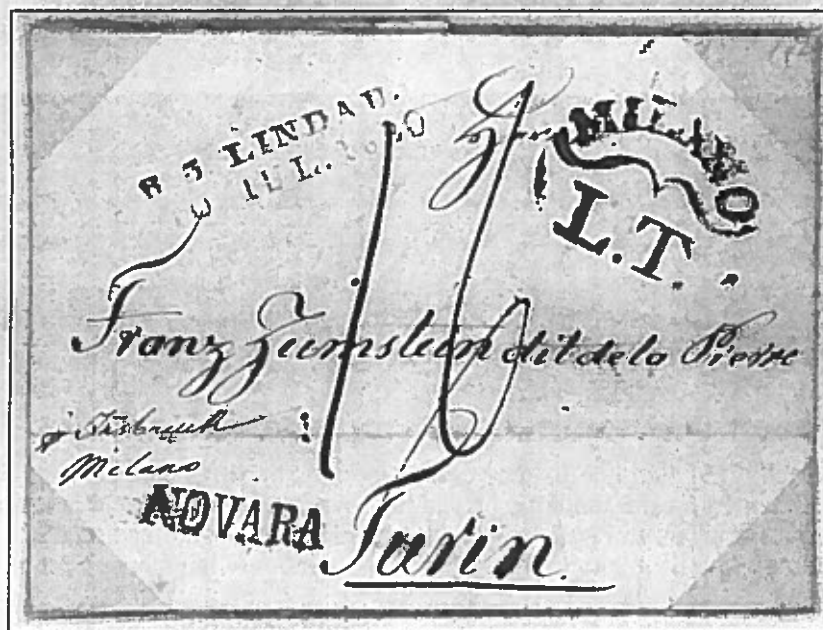 R 3 LINDAU.
11 L.
MILANO
L.T.
Franz Zumstein dit de la Pierre
Milano
NOVARA
Turin.